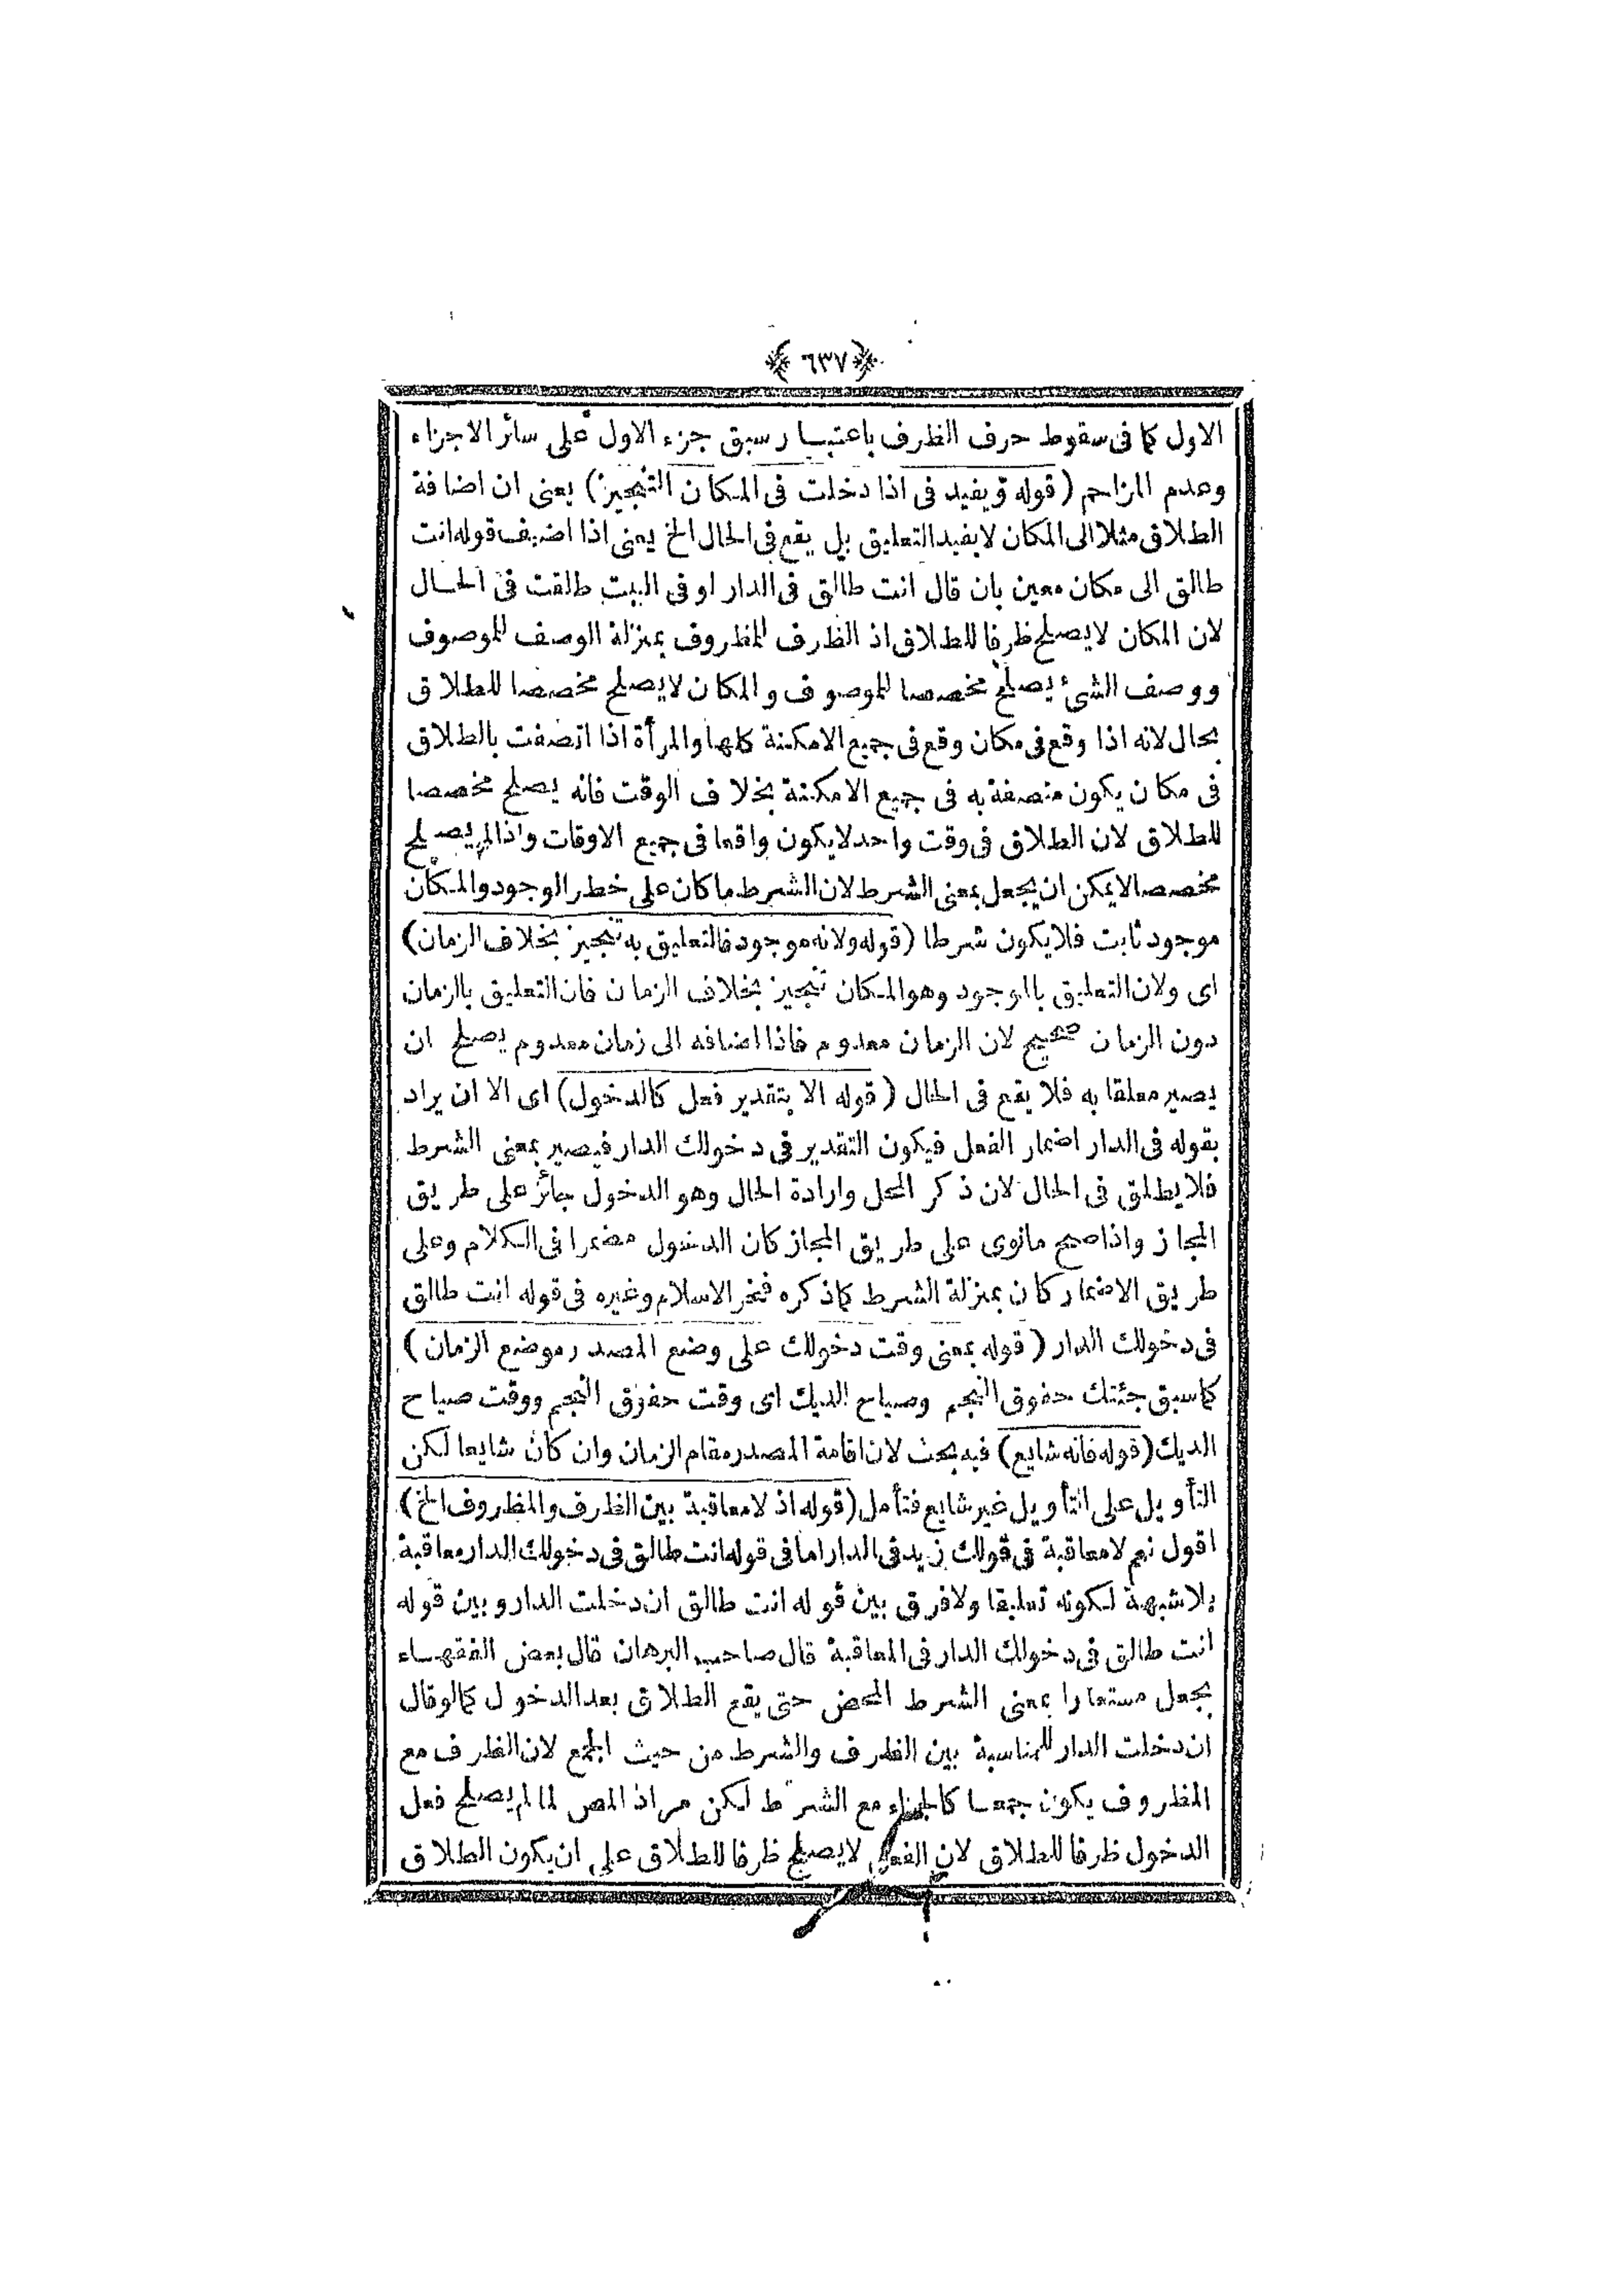 ﴿ ٦٣٧ ﴾
الاول كما فى سقوط حرف الظرف باعتبار سبق جزء الاول على سائر الاجزاء
وعدم المزاحم (قوله ويفيد فى اذا دخلت فى المكان التنجيز) يعنى ان اضافة
الطلاق مثلا الى المكان لا يفيد التعليق بل يقع فى الحال الخ يعنى اذا اضيف قوله انت
طالق الى مكان معين بان قال انت طالق فى الدار او فى البيت طلقت فى الحال
لان المكان لا يصلح ظرفا للطلاق اذ الظرف للمظروف بمنزلة الوصف للموصوف
ووصف الشئ يصلح مخصصا للموصوف والمكان لا يصلح مخصصا للطلاق
بحال لانه اذا وقع فى مكان وقع فى جميع الامكنة كلها والمرأة اذا اتصفت بالطلاق
فى مكان يكون متصفة به فى جميع الامكنة بخلاف الوقت فانه يصلح مخصصا
للطلاق لان الطلاق فى وقت واحد لا يكون واقعا فى جميع الاوقات واذا لم يصلح
مخصصا لا يمكن ان يجعل بمعنى الشرط لان الشرط ما كان على خطر الوجود والمكان
موجود ثابت فلا يكون شرطا (قوله ولانه موجود فالتعليق به تنجيز بخلاف الزمان)
اى ولان التعليق بالموجود وهو المكان تنجيز بخلاف الزمان فان التعليق بالزمان
دون الزمان صحيح لان الزمان معدوم فاذا اضافه الى زمان معدوم يصلح ان
يصير معلقا به فلا يقع فى الحال (قوله الا بتقدير فعل كالدخول) اى الا ان يراد
بقوله فى الدار اضمار الفعل فيكون التقدير فى دخولك الدار فيصير بمعنى الشرط
فلا يطلق فى الحال لان ذكر المحل وارادة الحال وهو الدخول جائز على طريق
المجاز واذا صح مانوى على طريق المجاز كان الدخول مضمرا فى الكلام وعلى
طريق الاضمار كان بمنزلة الشرط كما ذكره فخر الاسلام وغيره فى قوله انت طالق
فى دخولك الدار (قوله بمعنى وقت دخولك على وضع المصدر موضع الزمان)
كما سبق جئتك خفوق النجم وصياح الديك اى وقت خفوق النجم ووقت صياح
الديك (قوله فانه شايع) فيه بحث لان اقامة المصدر مقام الزمان وان كان شايعا لكن
التأويل على التأويل غير شايع فتأمل (قوله اذ لا معاقبة بين الظرف والمظروف الخ)
اقول نعم لا معاقبة فى قولك زيد فى الدار اما فى قوله انت طالق فى دخولك الدار معاقبة
بلا شبهة لكونه تعليقا ولا فرق بين قوله انت طالق ان دخلت الدار وبين قوله
انت طالق فى دخولك الدار فى المعاقبة قال صاحب البرهان قال بعض الفقهاء
يجعل مستعارا بمعنى الشرط المحض حتى يقع الطلاق بعد الدخول كما لو قال
ان دخلت الدار للمناسبة بين الظرف والشرط من حيث الجمع لان الظرف مع
المظروف يكون جمعا كالجزاء مع الشرط لكن مراد المص لما لم يصلح فعل
الدخول ظرفا للطلاق لان الفعل لا يصلح ظرفا للطلاق على ان يكون الطلاق